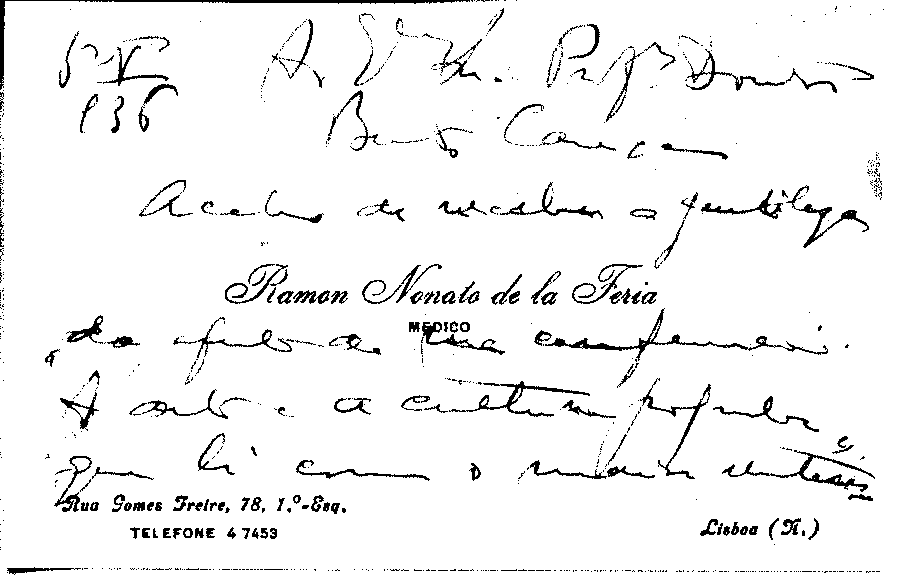 5-V
936
A. V. Ex. Prof. Doutor
Bento Caraça
Acabo de receber a gentileza
Ramon Nonato de la Feria
MEDICO
da oferta da sua conferencia.
A arte e a cultura popular,
que li com o maior interesse
Rua Gomes Freire, 78, 1.º-Esq.
TELEFONE 4 7453
Lisboa (N.)